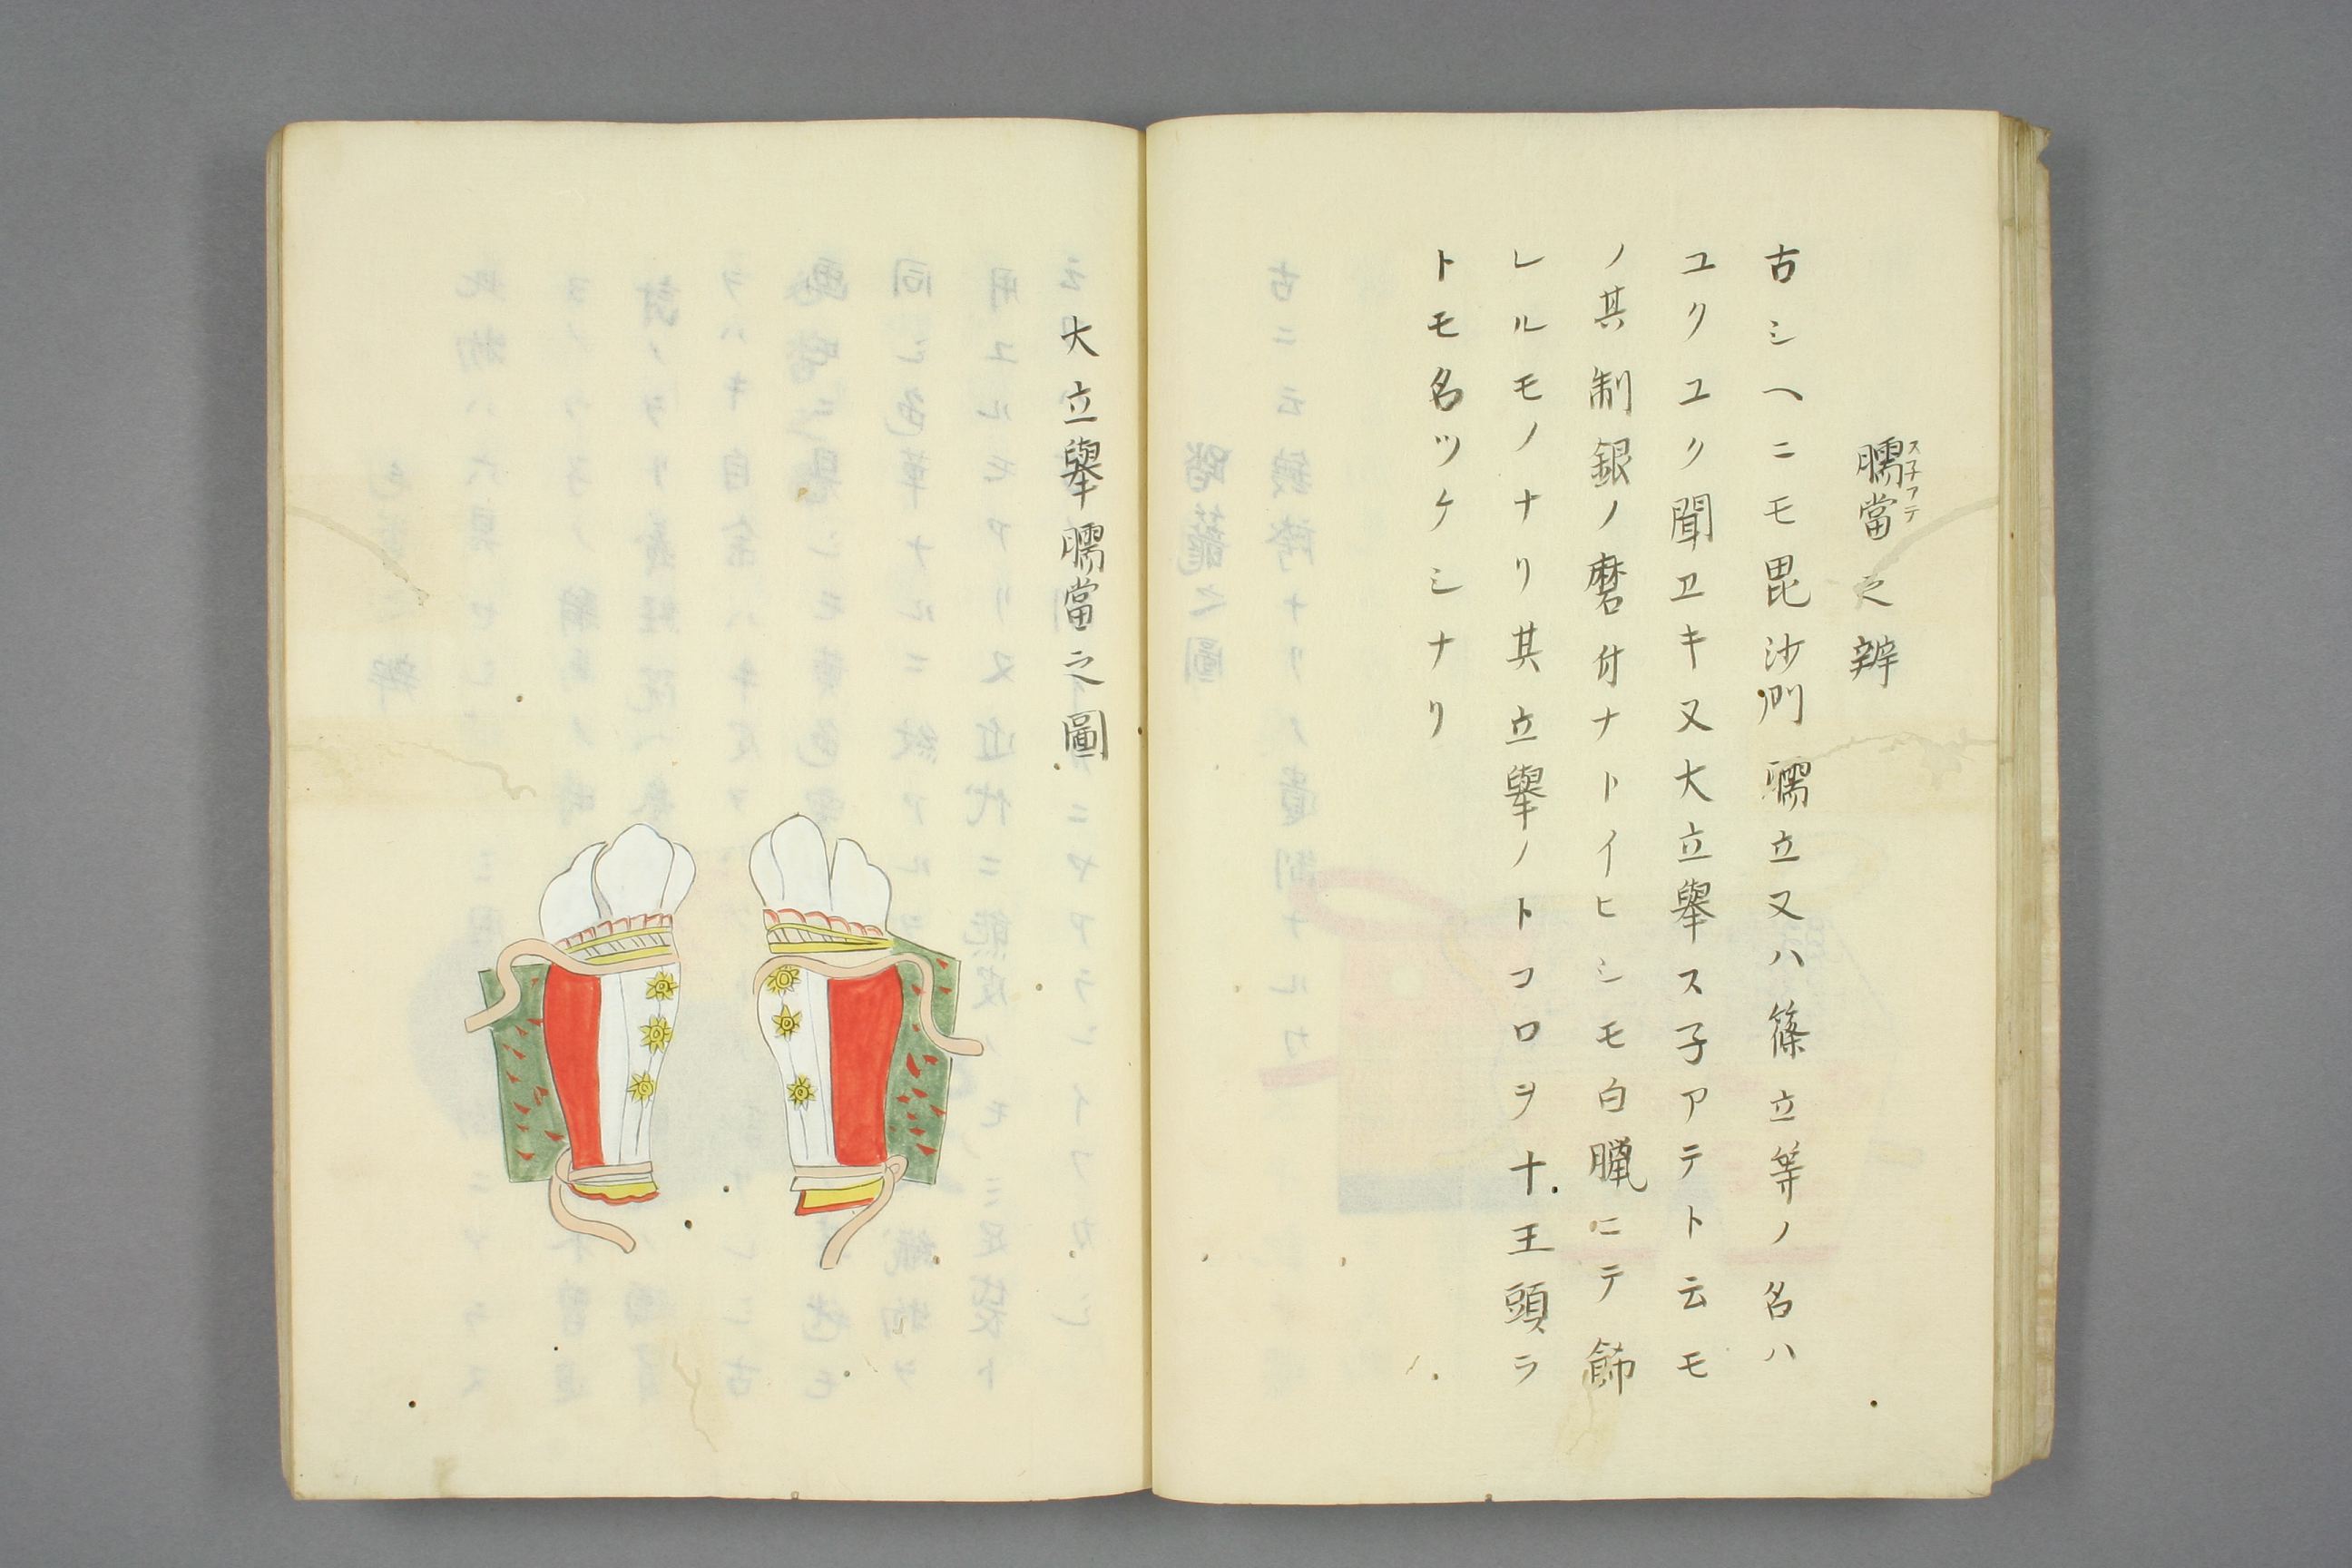 臑當之辨
ス子アテ
古シヘニモ毘沙門臑立又ハ篠立等ノ名ハ
ユクユク聞ヱキ又大立擧ス子アテト云モ
ノ其制銀ノ磨付ナトイヒシモ白臈ニテ餝
レルモノナリ其立擧ノトコロヲ十王頭ラ
トモ名ツケシナリ
大立擧臑當之圖